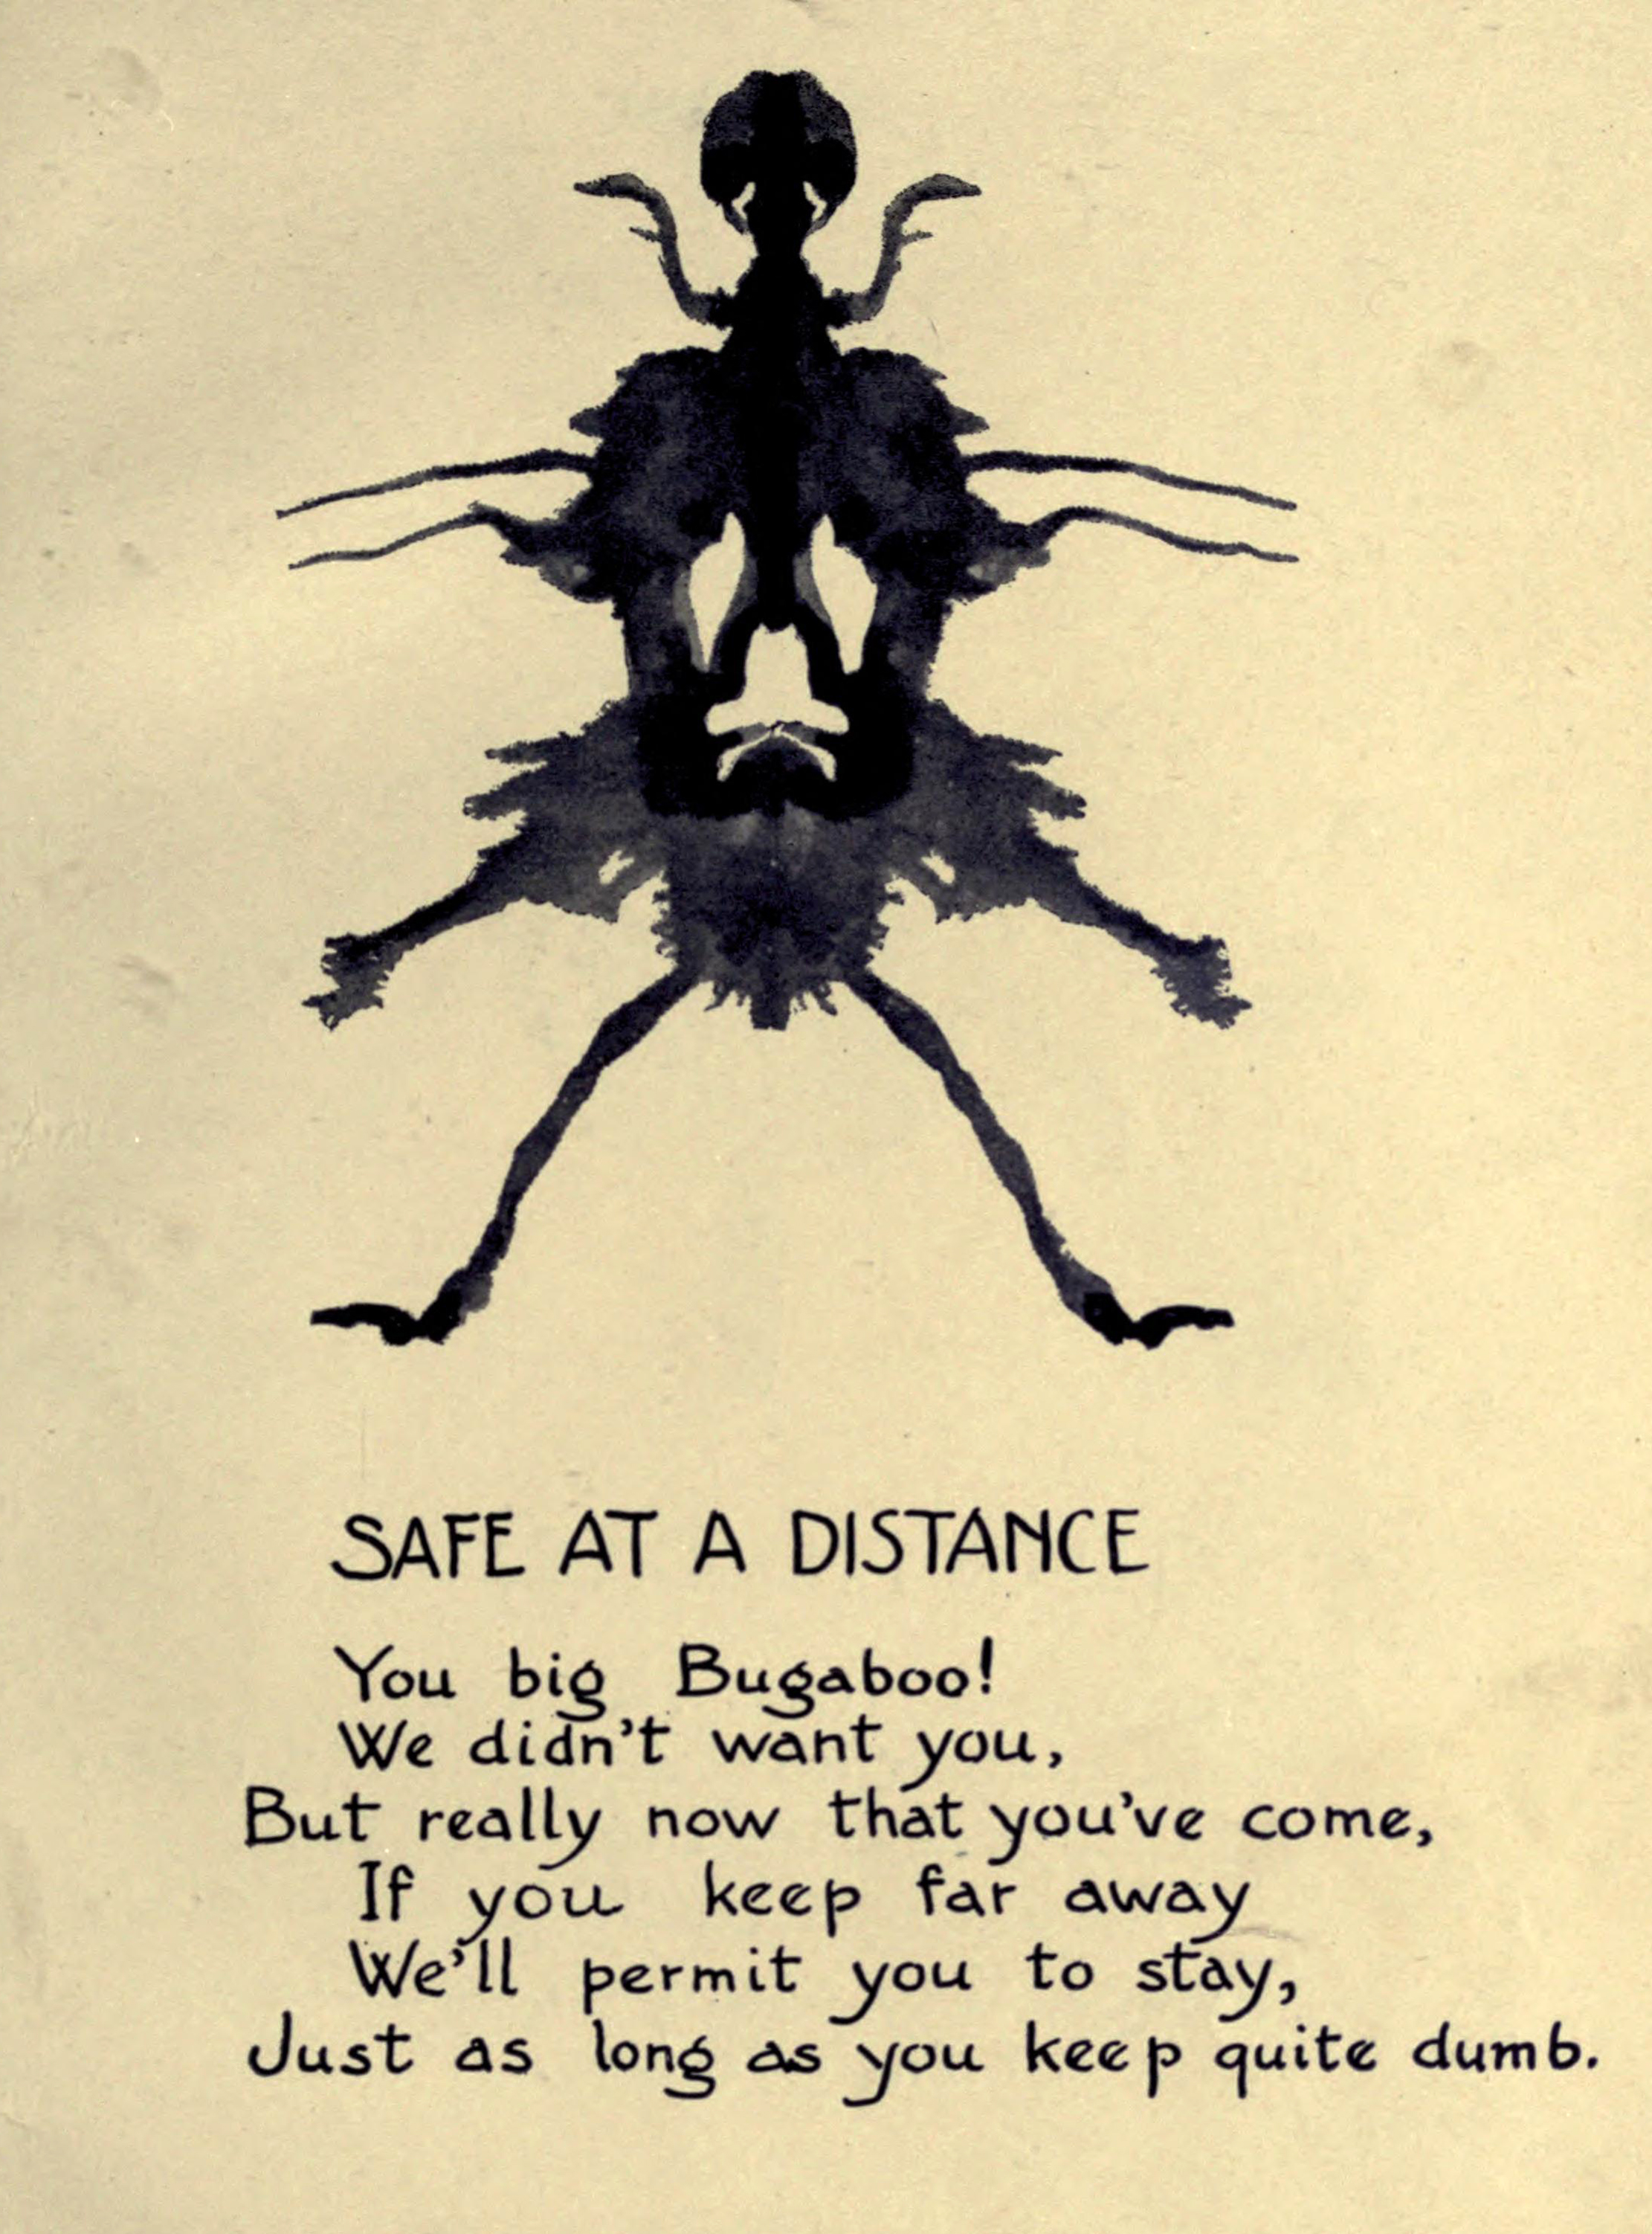 SAFE AT A DISTANCE
You big Bugaboo!
We didn't want you,
But really now that you've come,
If you keep far away
We'll permit you to stay,
Just as long as you keep quite dumb.